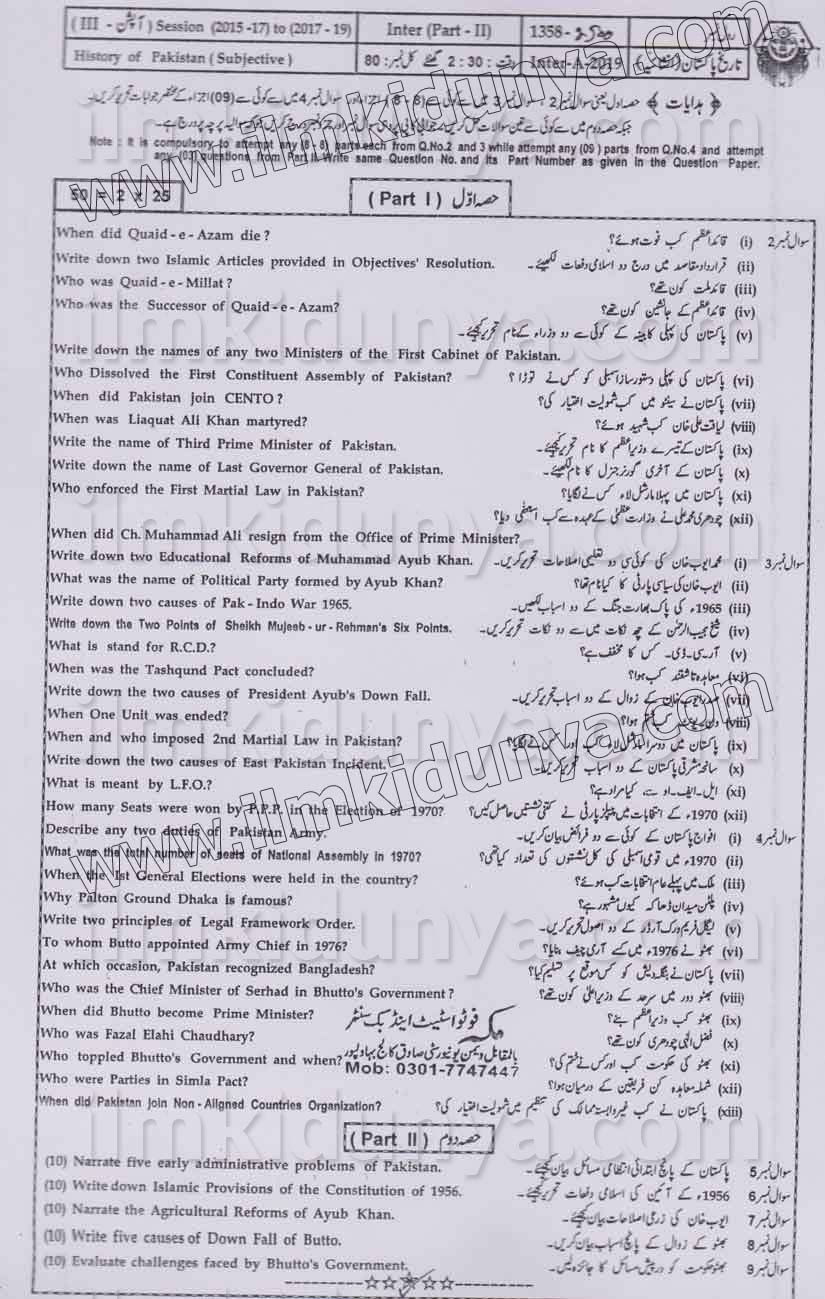 ( III - آپشن ) Session (2015 -17) to (2017 - 19)
Inter (Part - II)
1358 -
History of Pakistan ( Subjective )
وقت : 30 : 2 گھنٹے کل نمبر : 80
Inter-A-2019
تاریخ پاکستان (انشائیہ)
Note : It is compulsory to attempt any (8 - 8) parts each from Q.No.2 and 3 while attempt any (09 ) parts from Q.No.4 and attempt
any (03) questions from Part II. Write same Question No. and its Part Number as given in the Question Paper.
50 = 2 x 25
(Part I ) حصہ اوّل
When did Quaid - e - Azam die ? قائداعظم کب فوت ہوئے؟ (i) سوال نمبر 2
Write down two Islamic Articles provided in Objectives' Resolution. قرارداد مقاصد میں درج دو اسلامی دفعات لکھیئے۔ (ii)
Who was Quaid - e - Millat ? قائد ملت کون تھے؟ (iii)
Who was the Successor of Quaid - e - Azam? قائداعظم کے جانشین کون تھے؟ (iv)
پاکستان کی پہلی کابینہ کے کوئی سے دو وزراء کے نام تحریر کیجئے۔ (v)
Write down the names of any two Ministers of the First Cabinet of Pakistan.
Who Dissolved the First Constituent Assembly of Pakistan? پاکستان کی پہلی دستور ساز اسمبلی کو کس نے توڑا ؟ (vi)
When did Pakistan join CENTO ? پاکستان نے سینٹو میں کب شمولیت اختیار کی؟ (vii)
When was Liaquat Ali Khan martyred? لیاقت علی خان کب شہید ہوئے؟ (viii)
Write the name of Third Prime Minister of Pakistan. پاکستان کے تیسرے وزیراعظم کا نام تحریر کیجئے۔ (ix)
Write down the name of Last Governor General of Pakistan. پاکستان کے آخری گورنر جنرل کا نام لکھیئے۔ (x)
Who enforced the First Martial Law in Pakistan? پاکستان میں پہلا مارشل لاء کس نے لگایا؟ (xi)
چودھری محمد علی نے وزارت عظمٰی کے عہدہ سے کب استعفٰی دیا؟ (xii)
When did Ch. Muhammad Ali resign from the Office of Prime Minister?
Write down two Educational Reforms of Muhammad Ayub Khan. محمد ایوب خان کی کوئی سی دو تعلیمی اصلاحات تحریر کریں۔ (i) سوال نمبر 3
What was the name of Political Party formed by Ayub Khan? ایوب خان کی سیاسی پارٹی کا کیا نام تھا؟ (ii)
Write down two causes of Pak - Indo War 1965. 1965ء کی پاک بھارت جنگ کے دو اسباب لکھیں۔ (iii)
Write down the Two Points of Sheikh Mujeeb - ur - Rehman's Six Points. شیخ مجیب الرحمٰن کے چھ نکات میں سے دو نکات تحریر کریں۔ (iv)
What is stand for R.C.D.? آر۔سی۔ڈی۔ کس کا مخفف ہے؟ (v)
When was the Tashqund Pact concluded? معاہدہ تاشقند کب ہوا؟ (vi)
Write down the two causes of President Ayub's Down Fall. صدر ایوب خان کے زوال کے دو اسباب تحریر کریں۔ (vii)
When One Unit was ended? ون یونٹ کب ختم ہوا؟ (viii)
When and who imposed 2nd Martial Law in Pakistan? پاکستان میں دوسرا مارشل لاء کب اور کس نے لگایا؟ (ix)
Write down the two causes of East Pakistan Incident. سانحہ مشرقی پاکستان کے دو اسباب تحریر کریں۔ (x)
What is meant by L.F.O.? ایل۔ایف۔او سے کیا مراد ہے؟ (xi)
How many Seats were won by P.P.P. in the Election of 1970? 1970ء کے انتخابات میں پیپلز پارٹی نے کتنی نشستیں حاصل کیں؟ (xii)
Describe any two duties of Pakistan Army. افواج پاکستان کے کوئی سے دو فرائض بیان کریں۔ (i) سوال نمبر 4
What was the total number of seats of National Assembly in 1970? 1970ء میں قومی اسمبلی کی کل نشستوں کی تعداد کیا تھی؟ (ii)
When the Ist General Elections were held in the country? ملک میں پہلے عام انتخابات کب ہوئے؟ (iii)
Why Palton Ground Dhaka is famous? پلٹن میدان ڈھاکہ کیوں مشہور ہے؟ (iv)
Write two principles of Legal Framework Order. لیگل فریم ورک آرڈر کے دو اصول تحریر کریں۔ (v)
To whom Butto appointed Army Chief in 1976? بھٹو نے 1976ء میں کسے آرمی چیف بنایا؟ (vi)
At which occasion, Pakistan recognized Bangladesh? پاکستان نے بنگلہ دیش کو کس موقع پر تسلیم کیا؟ (vii)
Who was the Chief Minister of Serhad in Bhutto's Government ? بھٹو دور میں سرحد کے وزیراعلٰی کون تھے؟ (viii)
When did Bhutto become Prime Minister? بھٹو کب وزیراعظم بنے؟ (ix)
Who was Fazal Elahi Chaudhary? فضل الٰہی چودھری کون تھے؟ (x)
Who toppled Bhutto's Government and when? بھٹو کی حکومت کب اور کس نے ختم کی؟ (xi)
Who were Parties in Simla Pact? شملہ معاہدہ کن فریقین کے درمیان ہوا؟ (xii)
مکہ فوٹو اسٹیٹ اینڈ بک سنٹر
بالمقابل ویمن یونیورسٹی صادق کالج بہاولپور
Mob: 0301-7747447
When did Pakistan join Non - Aligned Countries Organization? پاکستان نے کب غیر وابستہ ممالک کی تنظیم میں شمولیت اختیار کی؟ (xiii)
(Part II ) حصہ دوم
(10) Narrate five early administrative problems of Pakistan. پاکستان کے پانچ ابتدائی انتظامی مسائل بیان کیجئے۔ سوال نمبر 5
(10) Write down Islamic Provisions of the Constitution of 1956. 1956ء کے آئین کی اسلامی دفعات تحریر کیجئے۔ سوال نمبر 6
(10) Narrate the Agricultural Reforms of Ayub Khan. ایوب خان کی زرعی اصلاحات بیان کیجئے۔ سوال نمبر 7
(10) Write five causes of Down Fall of Butto. بھٹو کے زوال کے پانچ اسباب بیان کریں۔ سوال نمبر 8
(10) Evaluate challenges faced by Bhutto's Government. بھٹو حکومت کو درپیش مسائل کا جائزہ لیں۔ سوال نمبر 9
www.ilmkidunya.com
www.ilmkidunya.com